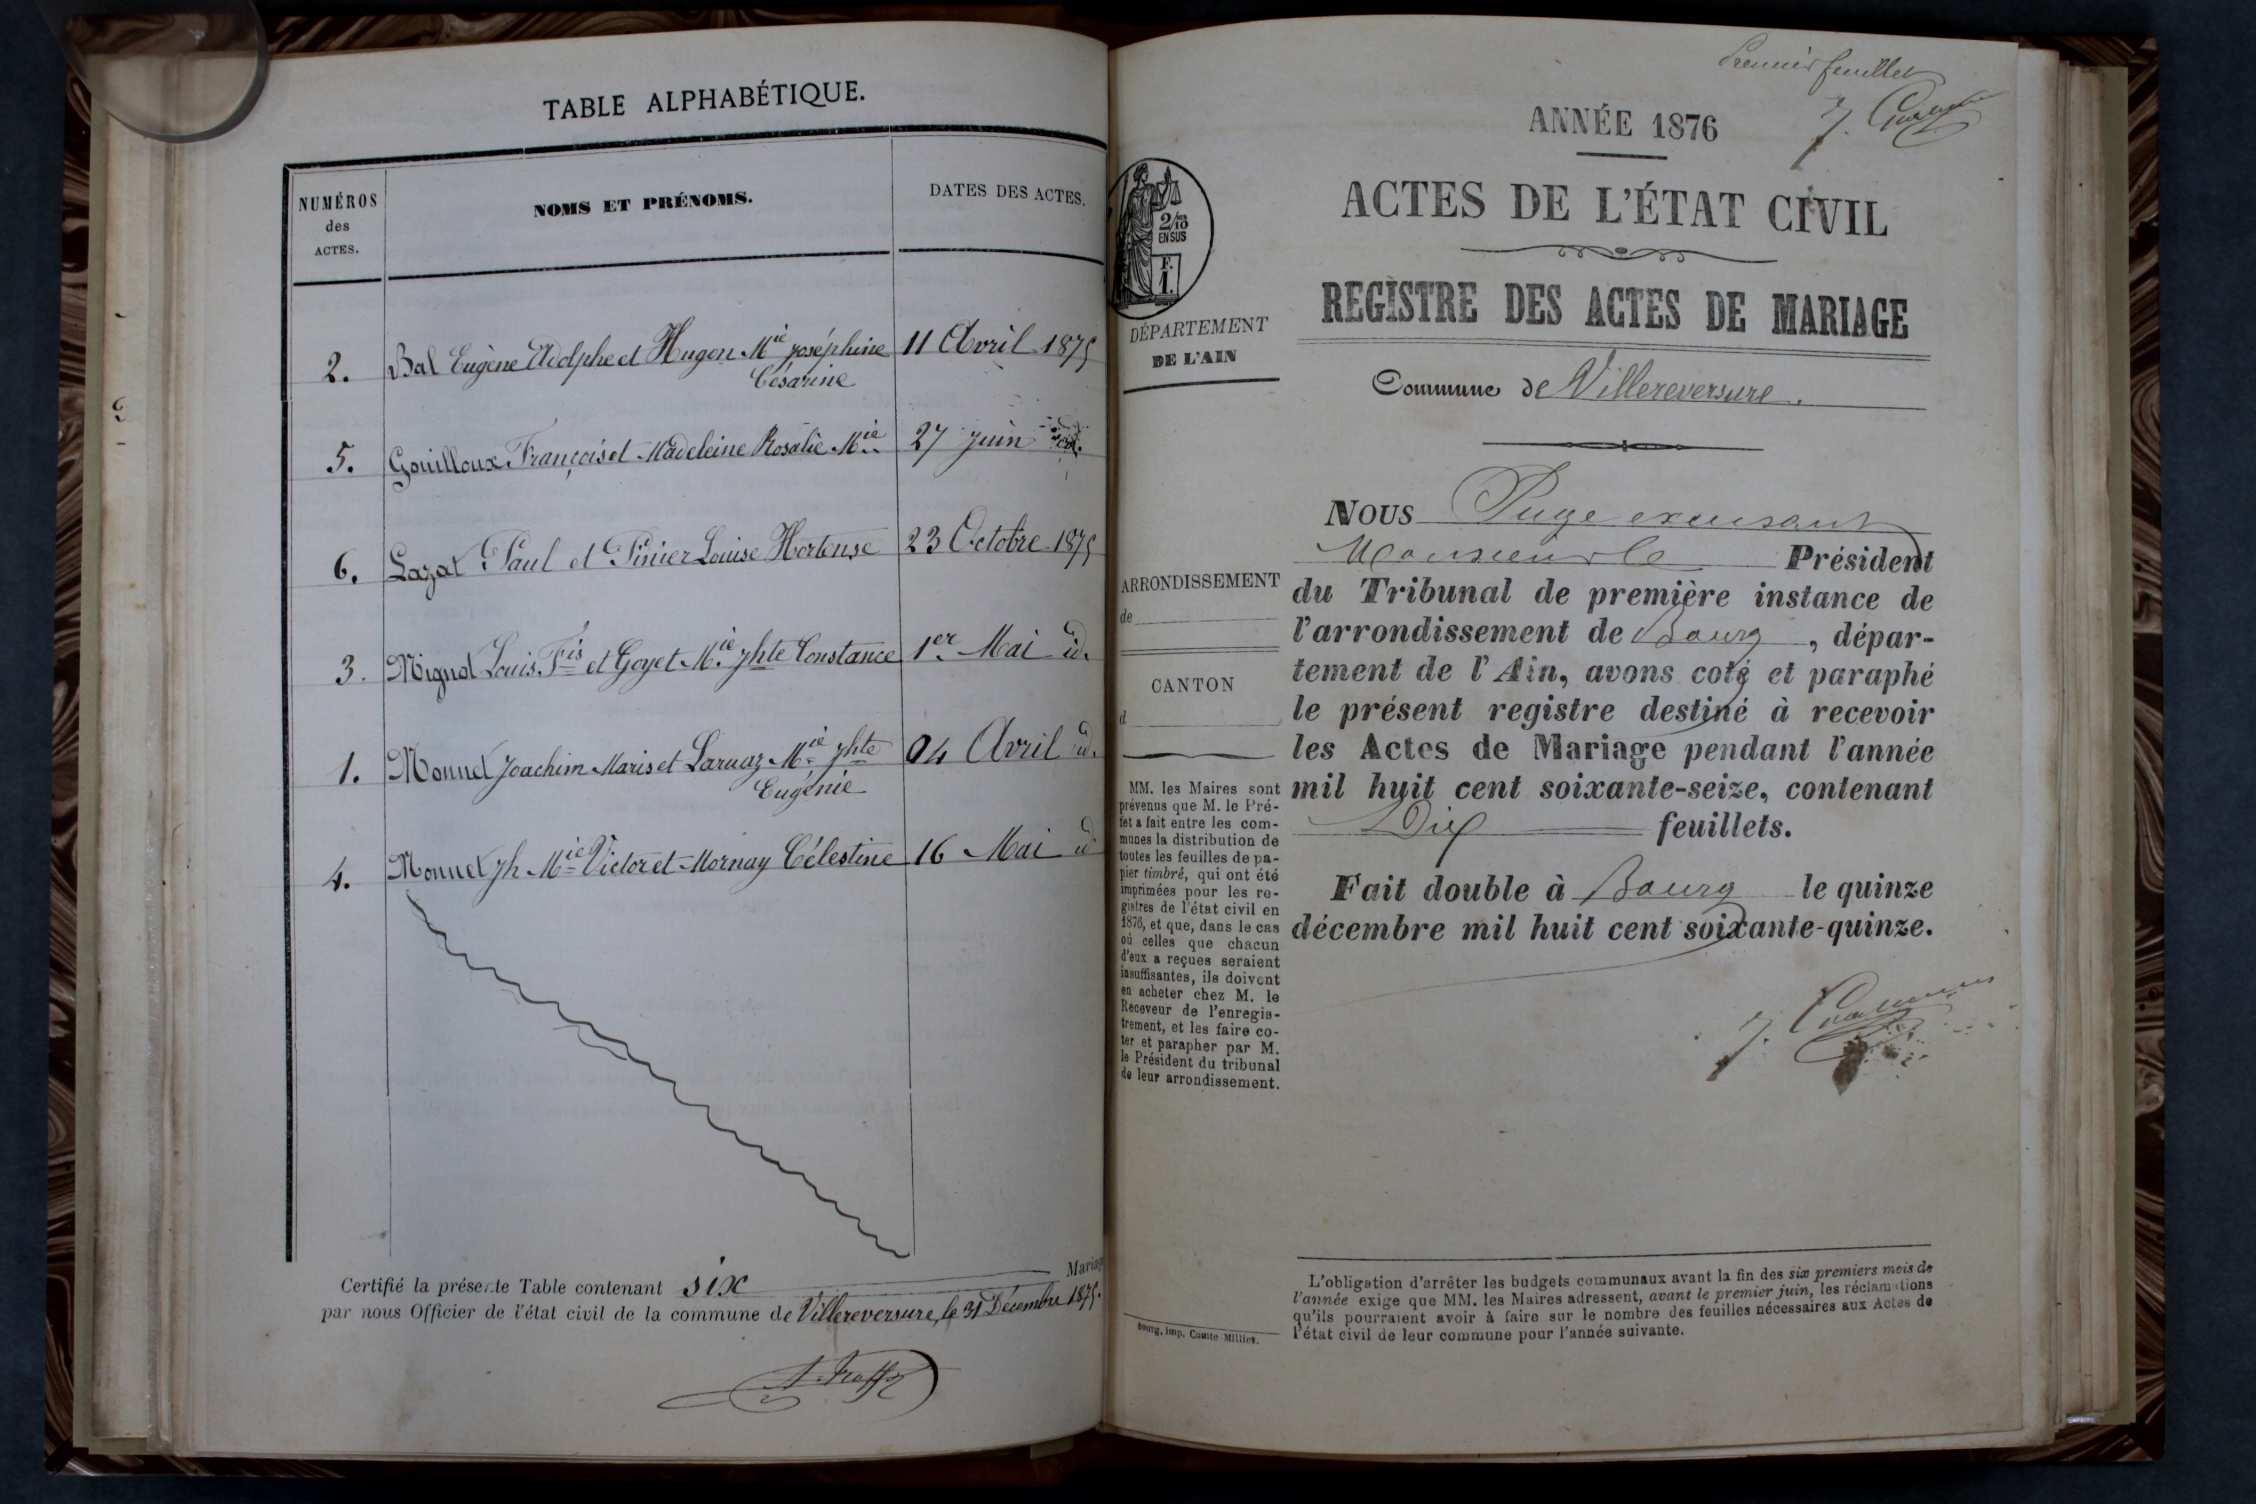 TABLE ALPHABÉTIQUE.
NUMÉROS
des
ACTES.
NOMS ET PRÉNOMS.
DATES DES ACTES.
2. Bal Eugène Adolphe et Hugon Mie Joséphine 11 Avril 1875
Césarine
5. Gouilloux François et Madeleine Rosalie Mie 27 Juin
6. Lazat Paul et Pinier Louise Hortense 23 Octobre 1875
3. Mignot Louis Fis et Goyet Mie Jhte Constance 1er Mai id.
1. Monnet Joachim Maris et Laruaz Mie Jhte 04 Avril id.
Eugénie
4. Monnet Jh Mie Victor et Mornay Célestine 16 Mai id
Certifié la présente Table contenant six Mariag
par nous Officier de l'état civil de la commune de Villereversure, le 31 Décembre 1875.
Premier feuillet
ANNÉE 1876
ACTES DE L'ÉTAT CIVIL
REGISTRE DES ACTES DE MARIAGE
Commune de Villereversure.
2/10
EN SUS
F.
1.
DÉPARTEMENT
DE L'AIN
ARRONDISSEMENT
de
CANTON
d
MM. les Maires sont
prévenus que M. le Pré-
fet a fait entre les com-
munes la distribution de
toutes les feuilles de pa-
pier timbré, qui ont été
imprimées pour les re-
gistres de l'état civil en
1876, et que, dans le cas
où celles que chacun
d'eux a reçues seraient
insuffisantes, ils doivent
en acheter chez M. le
Receveur de l'enregis-
trement, et les faire co-
ter et parapher par M.
le Président du tribunal
de leur arrondissement.
Bourg, imp. Comte Milliet.
NOUS Juge excusant
Monsieur le Président
du Tribunal de première instance de
l'arrondissement de Bourg, dépar-
tement de l'Ain, avons coté et paraphé
le présent registre destiné à recevoir
les Actes de Mariage pendant l'année
mil huit cent soixante-seize, contenant
Dix feuillets.
Fait double à Bourg le quinze
décembre mil huit cent soixante-quinze.
L'obligation d'arrêter les budgets communaux avant la fin des six premiers mois de
l'année exige que MM. les Maires adressent, avant le premier juin, les réclamations
qu'ils pourraient avoir à faire sur le nombre des feuilles nécessaires aux Actes de
l'état civil de leur commune pour l'année suivante.